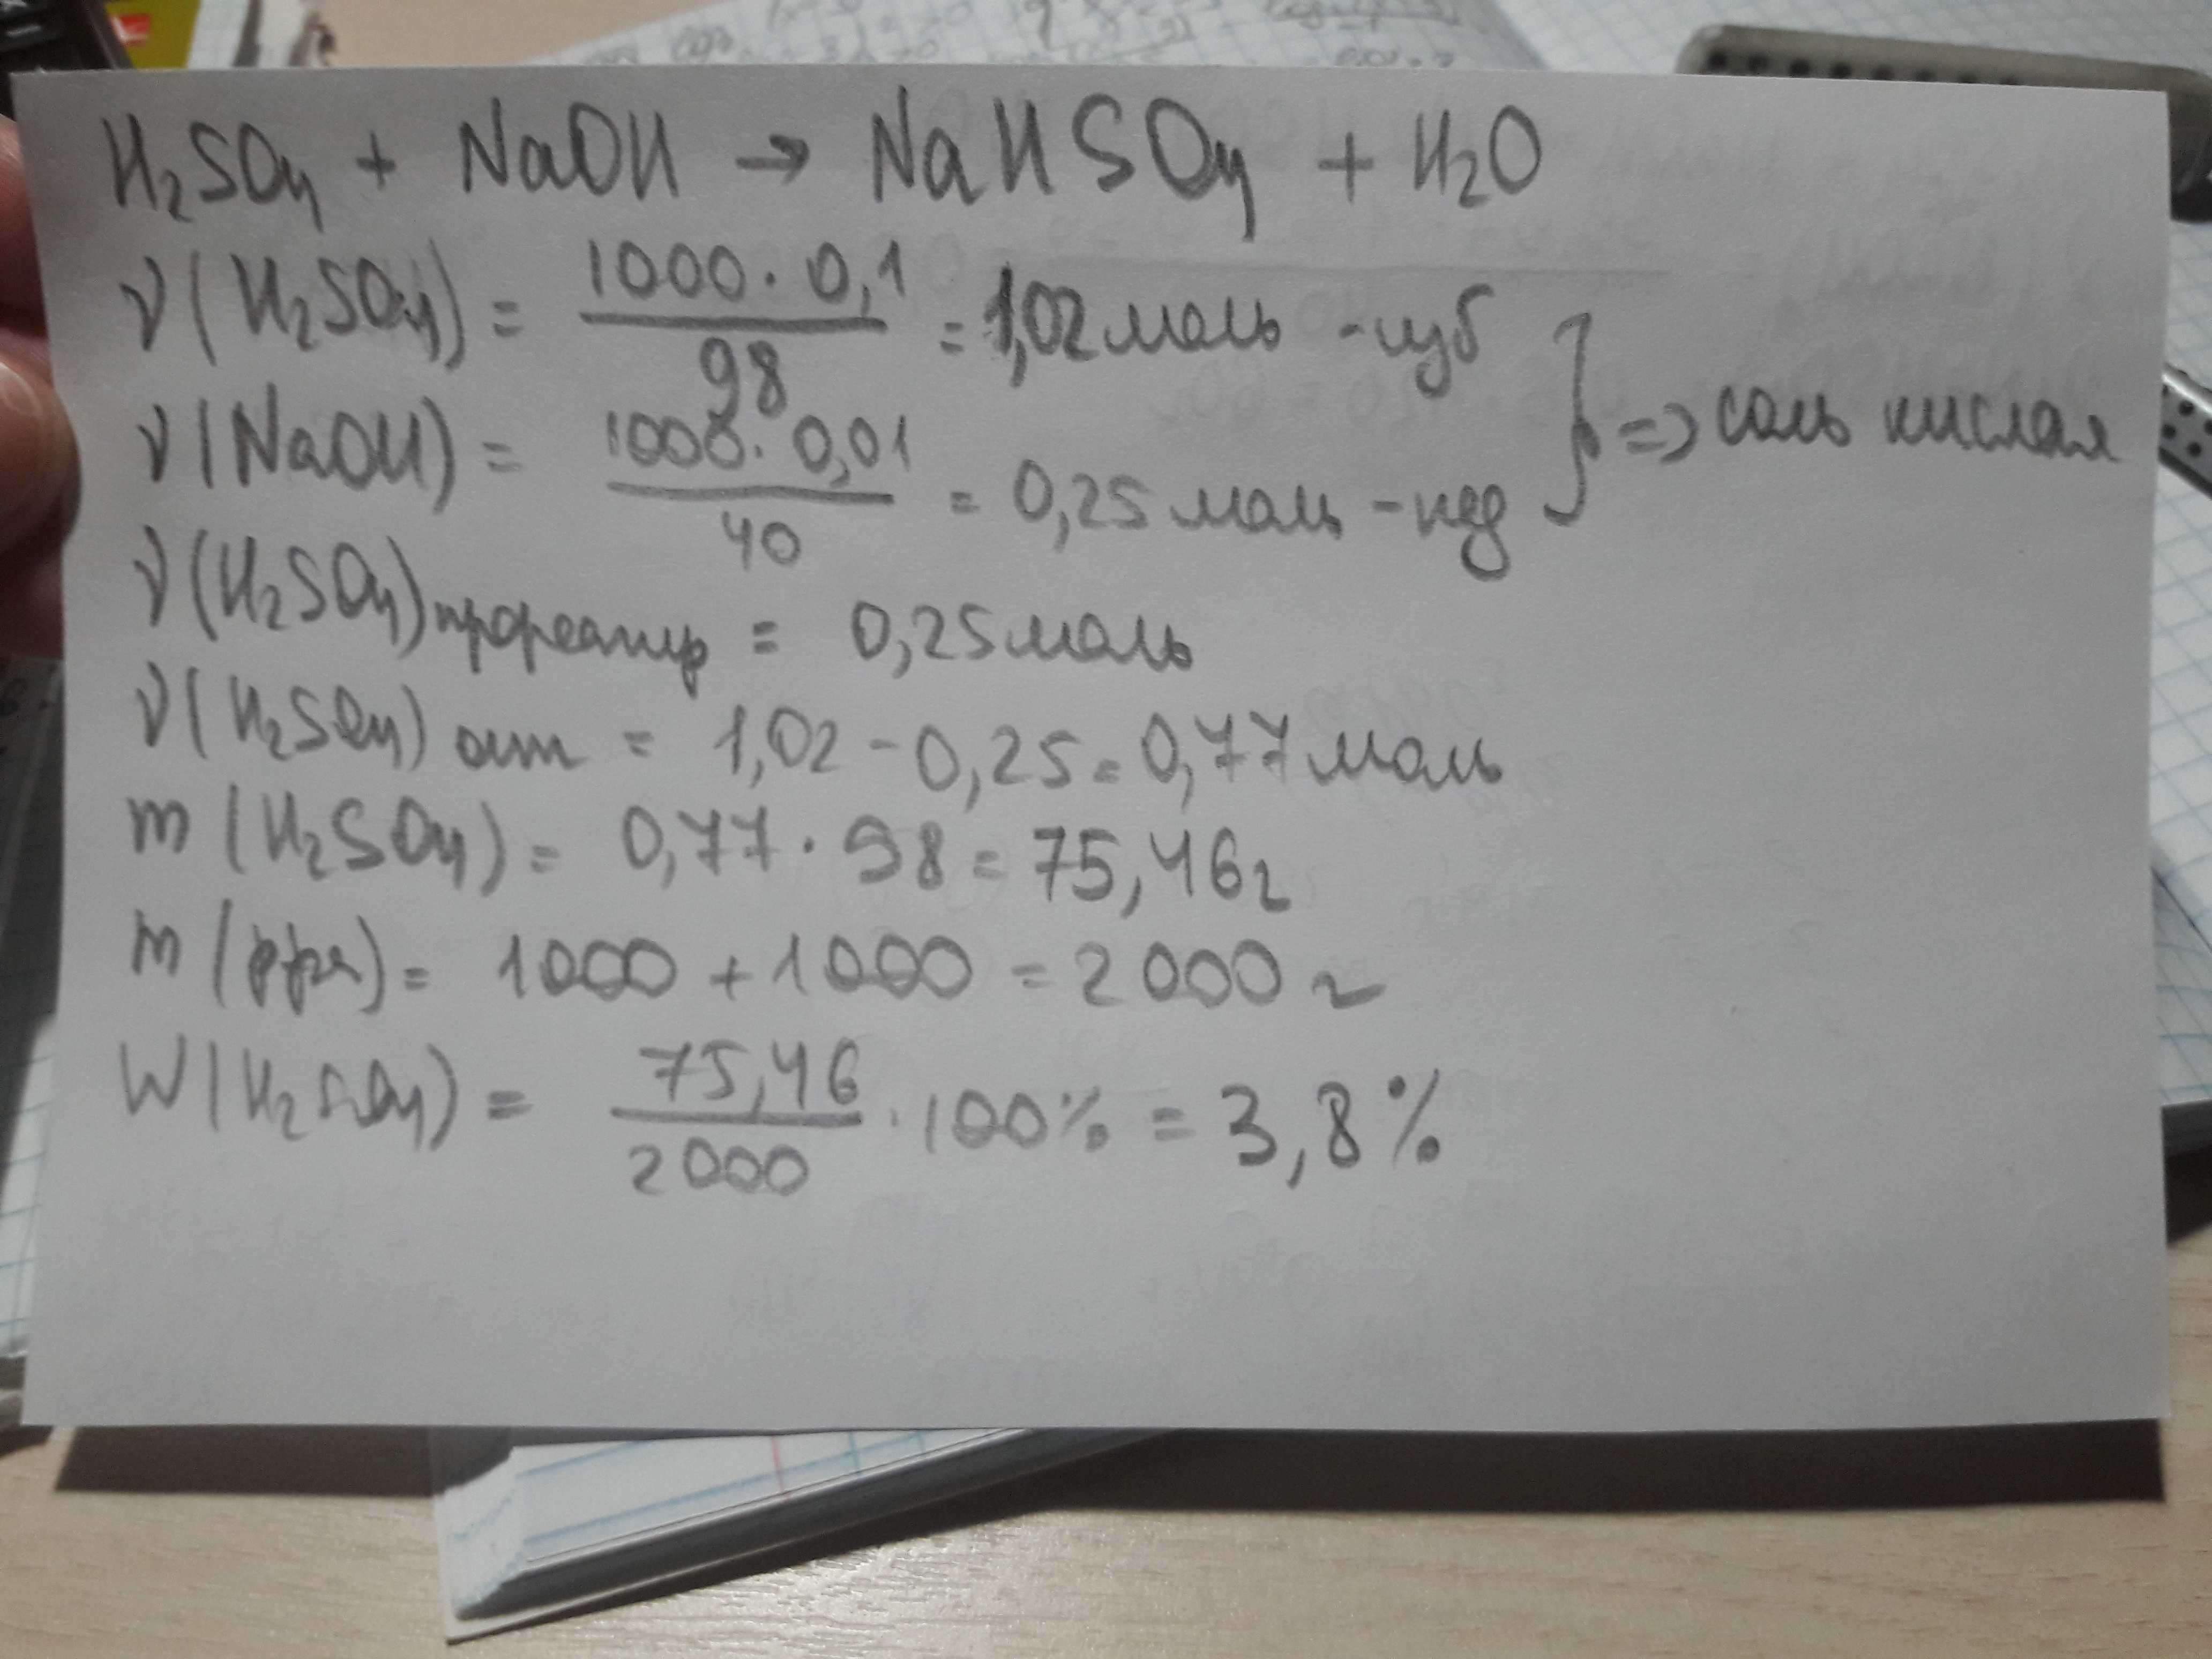 H₂SO₄ + NaOH → NaHSO₄ + H₂O
ν(H₂SO₄) = 1000 · 0,1 / 98 = 1,02 моль - изб
ν(NaOH) = 1000 · 0,01 / 40 = 0,25 моль - нед } => соль кислая
ν(H₂SO₄) прореагир = 0,25 моль
ν(H₂SO₄) ост = 1,02 - 0,25 = 0,77 моль
m(H₂SO₄) = 0,77 · 98 = 75,46 г
m(рра) = 1000 + 1000 = 2000 г
W(H₂SO₄) = 75,46 / 2000 · 100% = 3,8%